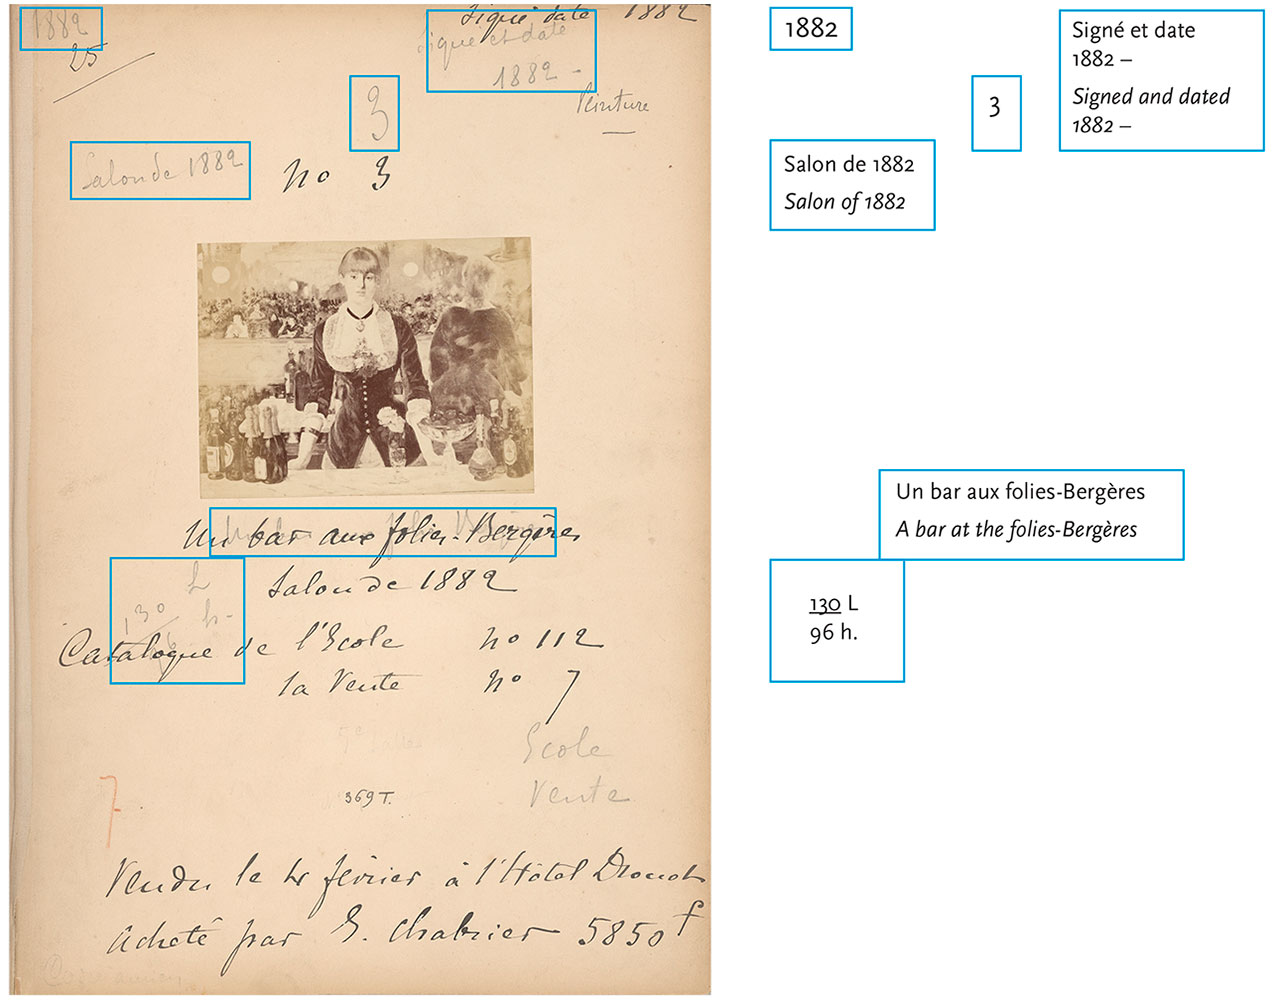 1882
25
Signé daté 1882
Signé et daté
1882 –
Peinture
3
Salon de 1882
no 3
Un bar aux folies-Bergères
Salon de 1882
L
130
h-
96
Catalogue de l'Ecole no 112
la Vente no 7
Ecole
Vente
7
369 T.
Vendu le 4 février à l'Hôtel Drouot
Acheté par E. Chabrier 5850 f
1882
Signé et date
1882 –
Signed and dated
1882 –
3
Salon de 1882
Salon of 1882
Un bar aux folies-Bergères
A bar at the folies-Bergères
130 L
96 h.